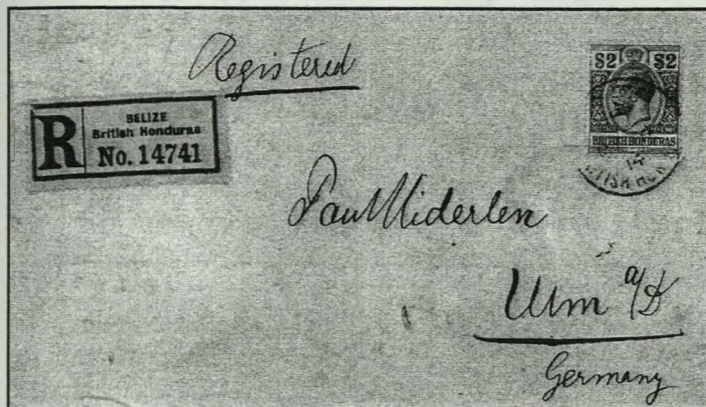 Registered
R
BELIZE
British Honduras
No. 14741
$2 $2
BRITISH HONDURAS
14
Paul Miderlen
Ulm a/D
Germany